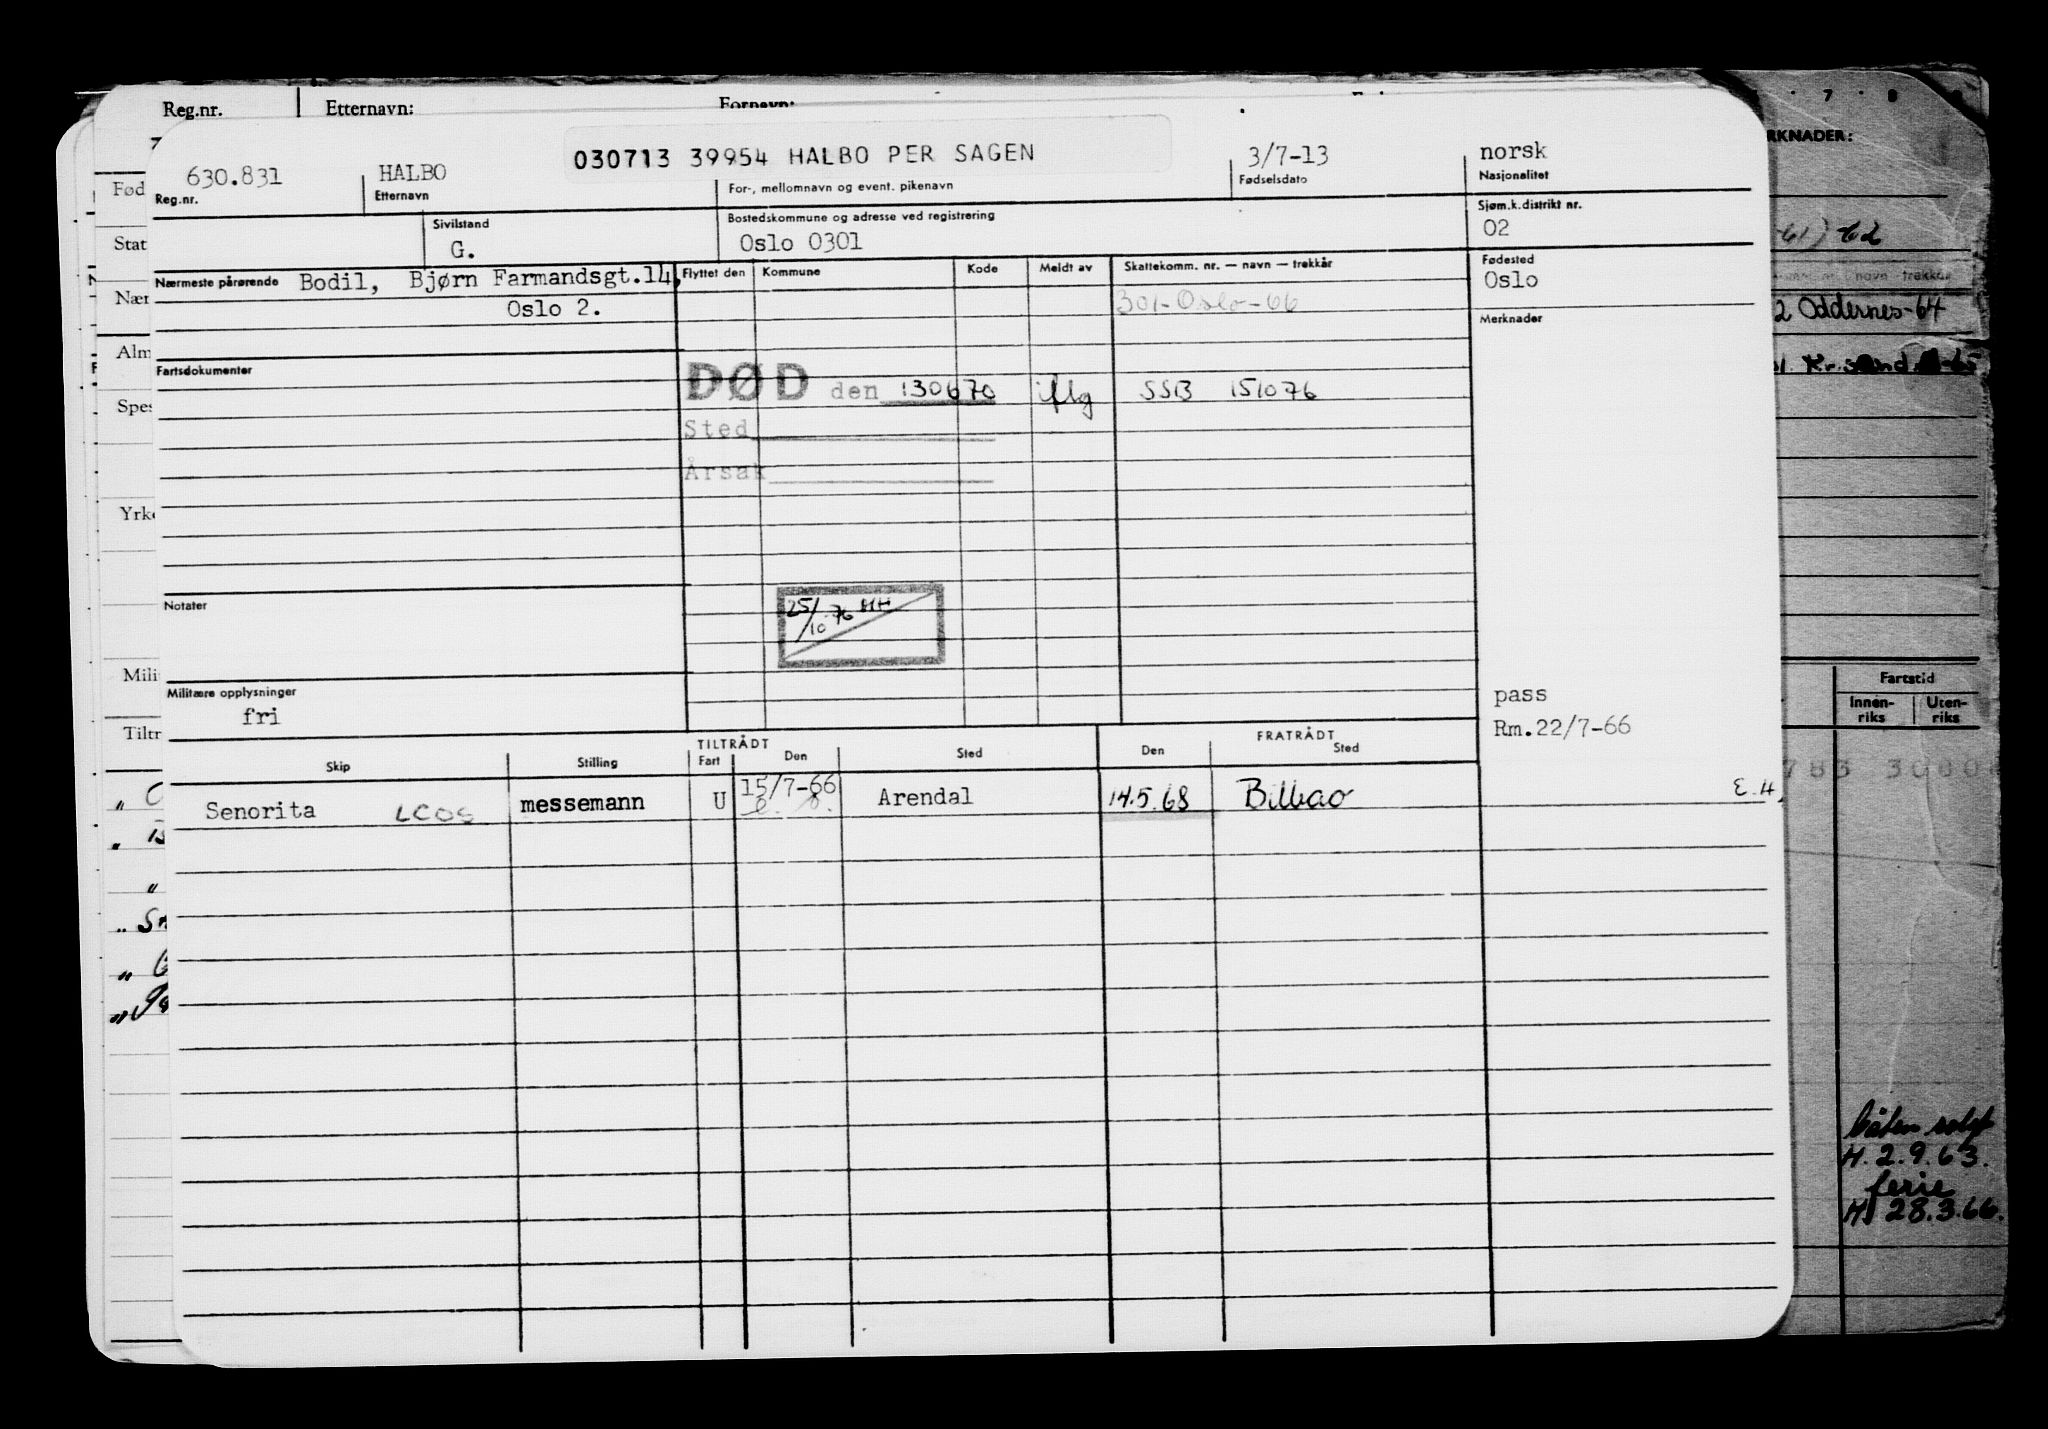 Reg.nr. Etternavn: Fornavn:
7 8
RKNADER:
630.831 HALBO 030713 39954 HALBO PER SAGEN 3/7-13 norsk
Reg.nr. Etternavn For-, mellomnavn og event. pikenavn Fødselsdato Nasjonalitet
Fød
Sivilstand Bostedskommune og adresse ved registrering Sjøm.k.distrikt nr.
Stat G. Oslo 0301 02
-61) 62
Nærmeste pårørende Bodil, Bjørn Farmandsgt.14, Flyttet den Kommune Kode Meldt av Skattekomm. nr. — navn — trekkår Fødested
Oslo
navn trekkår
Nær Oslo 2. 301-Oslo-66
2 Oddernes-64
Merknader
Alm
Fartsdokumenter
DØD den 130670 iflg SSB 151076
Spes
Sted
Årsak
Yrke
Notater
25/10 76 HH
Mili
Militære opplysninger
fri
pass
Rm.22/7-66
Fartstid
Innen-riks Uten-riks
Tiltr
TILTRÅDT FRATRÅDT
Skip Stilling Fart Den Sted Den Sted
783
Senorita LCOS messemann U 15/7-66 Arendal 14.5.68 Bilbao E.H.
båten solgt
H. 2.9.63.
ferie
H 28.3.66.